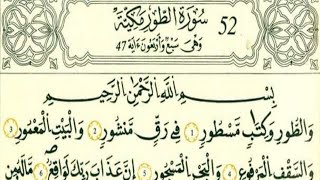 سُورَةُ الطُّورِ مَكِّيَّةٌ 52
وَهْيَ سَبْعٌ وَأَرْبَعُونَ ءَايَةً 47
بِسْمِ اللَّهِ الرَّحْمَٰنِ الرَّحِيمِ
وَالطُّورِ وَكِتَٰبٍ مَّسْطُورٍ 1 فِى رَقٍّ مَّنشُورٍ 2 وَالْبَيْتِ الْمَعْمُورِ 3
وَالسَّقْفِ الْمَرْفُوعِ 4 وَالْبَحْرِ الْمَسْجُورِ 5 إِنَّ عَذَابَ رَبِّكَ لَوَٰقِعٌ 6 مَّا لَهُۥ مِن